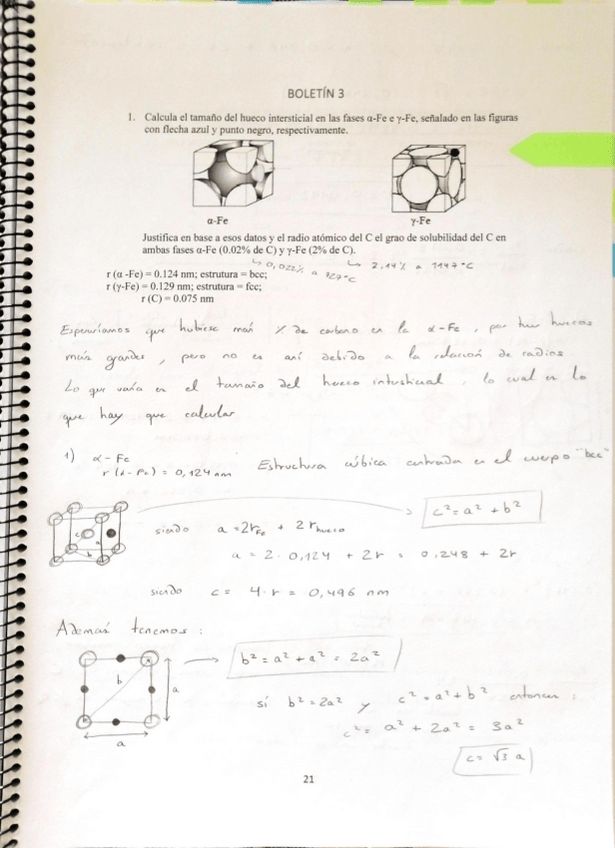 BOLETÍN 3
1. Calcula el tamaño del hueco intersticial en las fases α-Fe e γ-Fe, señalado en las figuras
con flecha azul y punto negro, respectivamente.
α-Fe γ-Fe
Justifica en base a esos datos y el radio atómico del C el grao de solubilidad del C en
ambas fases α-Fe (0.02% de C) y γ-Fe (2% de C).
↳ 0,022% a 727°C ↳ 2,14% a 1147°C
r (α -Fe) = 0.124 nm; estrutura = bcc;
r (γ-Fe) = 0.129 nm; estrutura = fcc;
r (C) = 0.075 nm
Esperaríamos que hubiese más % de carbono en la α-Fe, por huecos
más grandes, pero no es así debido a la relación de radios
Lo que varía es el tamaño del hueco intersticial, lo cual es lo
que hay que calcular
1) α-Fe
r (α-Fe) = 0,124 nm Estructura cúbica centrada en el cuerpo "bcc"
c² = a² + b²
siendo a = 2rFe + 2rhueco
a = 2 · 0,124 + 2r = 0.248 + 2r
siendo c = 4·r = 0,496 nm
Además tenemos:
b² = a² + a² = 2a²
si b² = 2a² y c² = a² + b² entonces:
c² = a² + 2a² = 3a²
c = √3 a
c
a
b
b
a
a
21